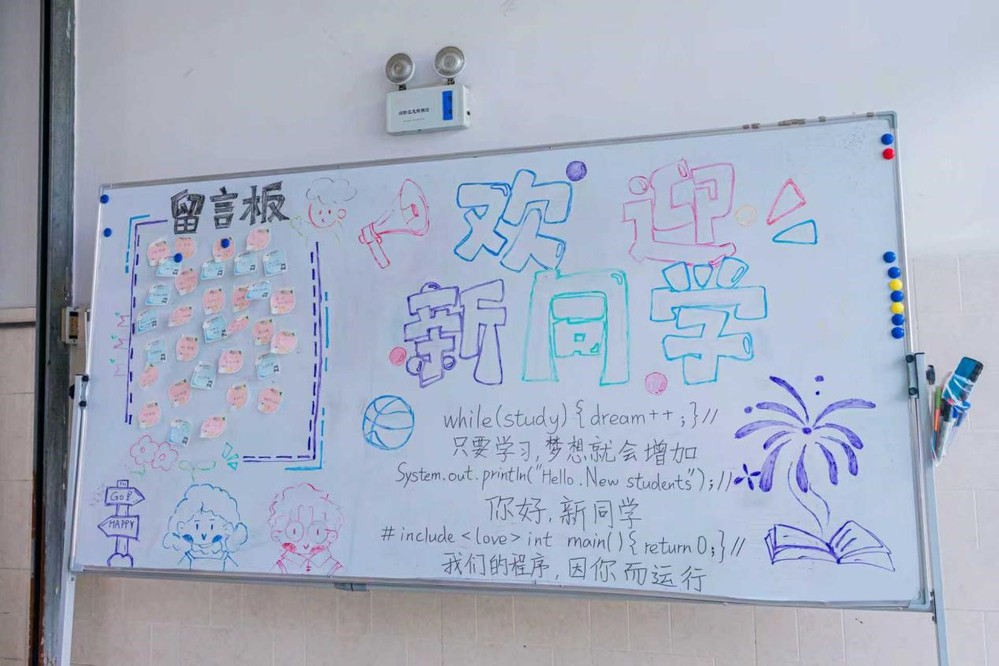 留言板
欢迎
新同学
while(study){dream++;}//
只要学习,梦想就会增加
System.out.println("Hello.New students");//
你好,新同学
#include<love>int main(){return 0;}//
我们的程序,因你而运行
GO!
HAPPY